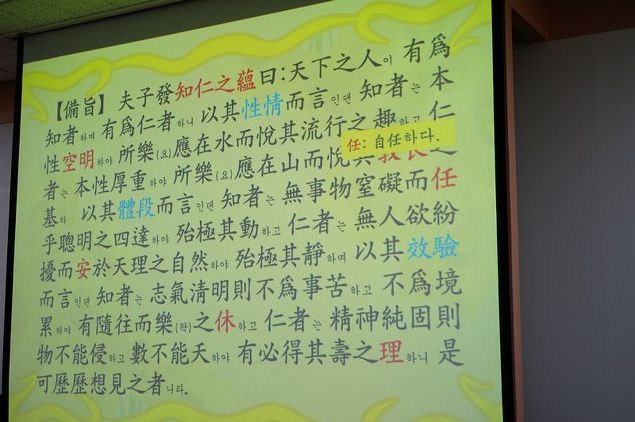 【備旨】 夫子發知仁之蘊曰:天下之人이 有爲
知者하며 有爲仁者하니 以其性情而言인댄 知者는 本
性空明하야 所樂(요)應在水而悅其流行之趣하고 仁
任: 自任하다.
者는 本性厚重하야 所樂(요)應在山而悅其 之
基하 以其體段而言인댄 知者는 無事物窒礙而任
乎聰明之四達하야 殆極其動하고 仁者는 無人欲紛
擾而安於天理之自然하야 殆極其靜하며 以其效驗
而言인댄 知者는 志氣淸明則不爲事苦하고 不爲境
累하야 有隨往而樂(락)之休하고 仁者는 精神純固則
物不能侵하고 數不能夭하야 有必得其壽之理하니 是
可歷歷想見之者니라.